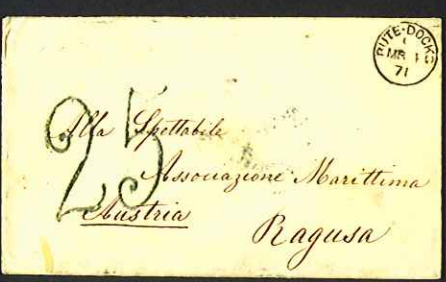 BUTE-DOCKS
C
MR 1
71
25
Alla Spettabile
Associazione Marittima
Austria
Ragusa